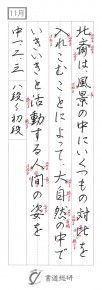 11月
北斎は風景の中にいくつもの対比を
入れこむことによって、大自然の中で
いきいきと活動する人間の姿を
中一、二、三 八段〜初段
書道総研